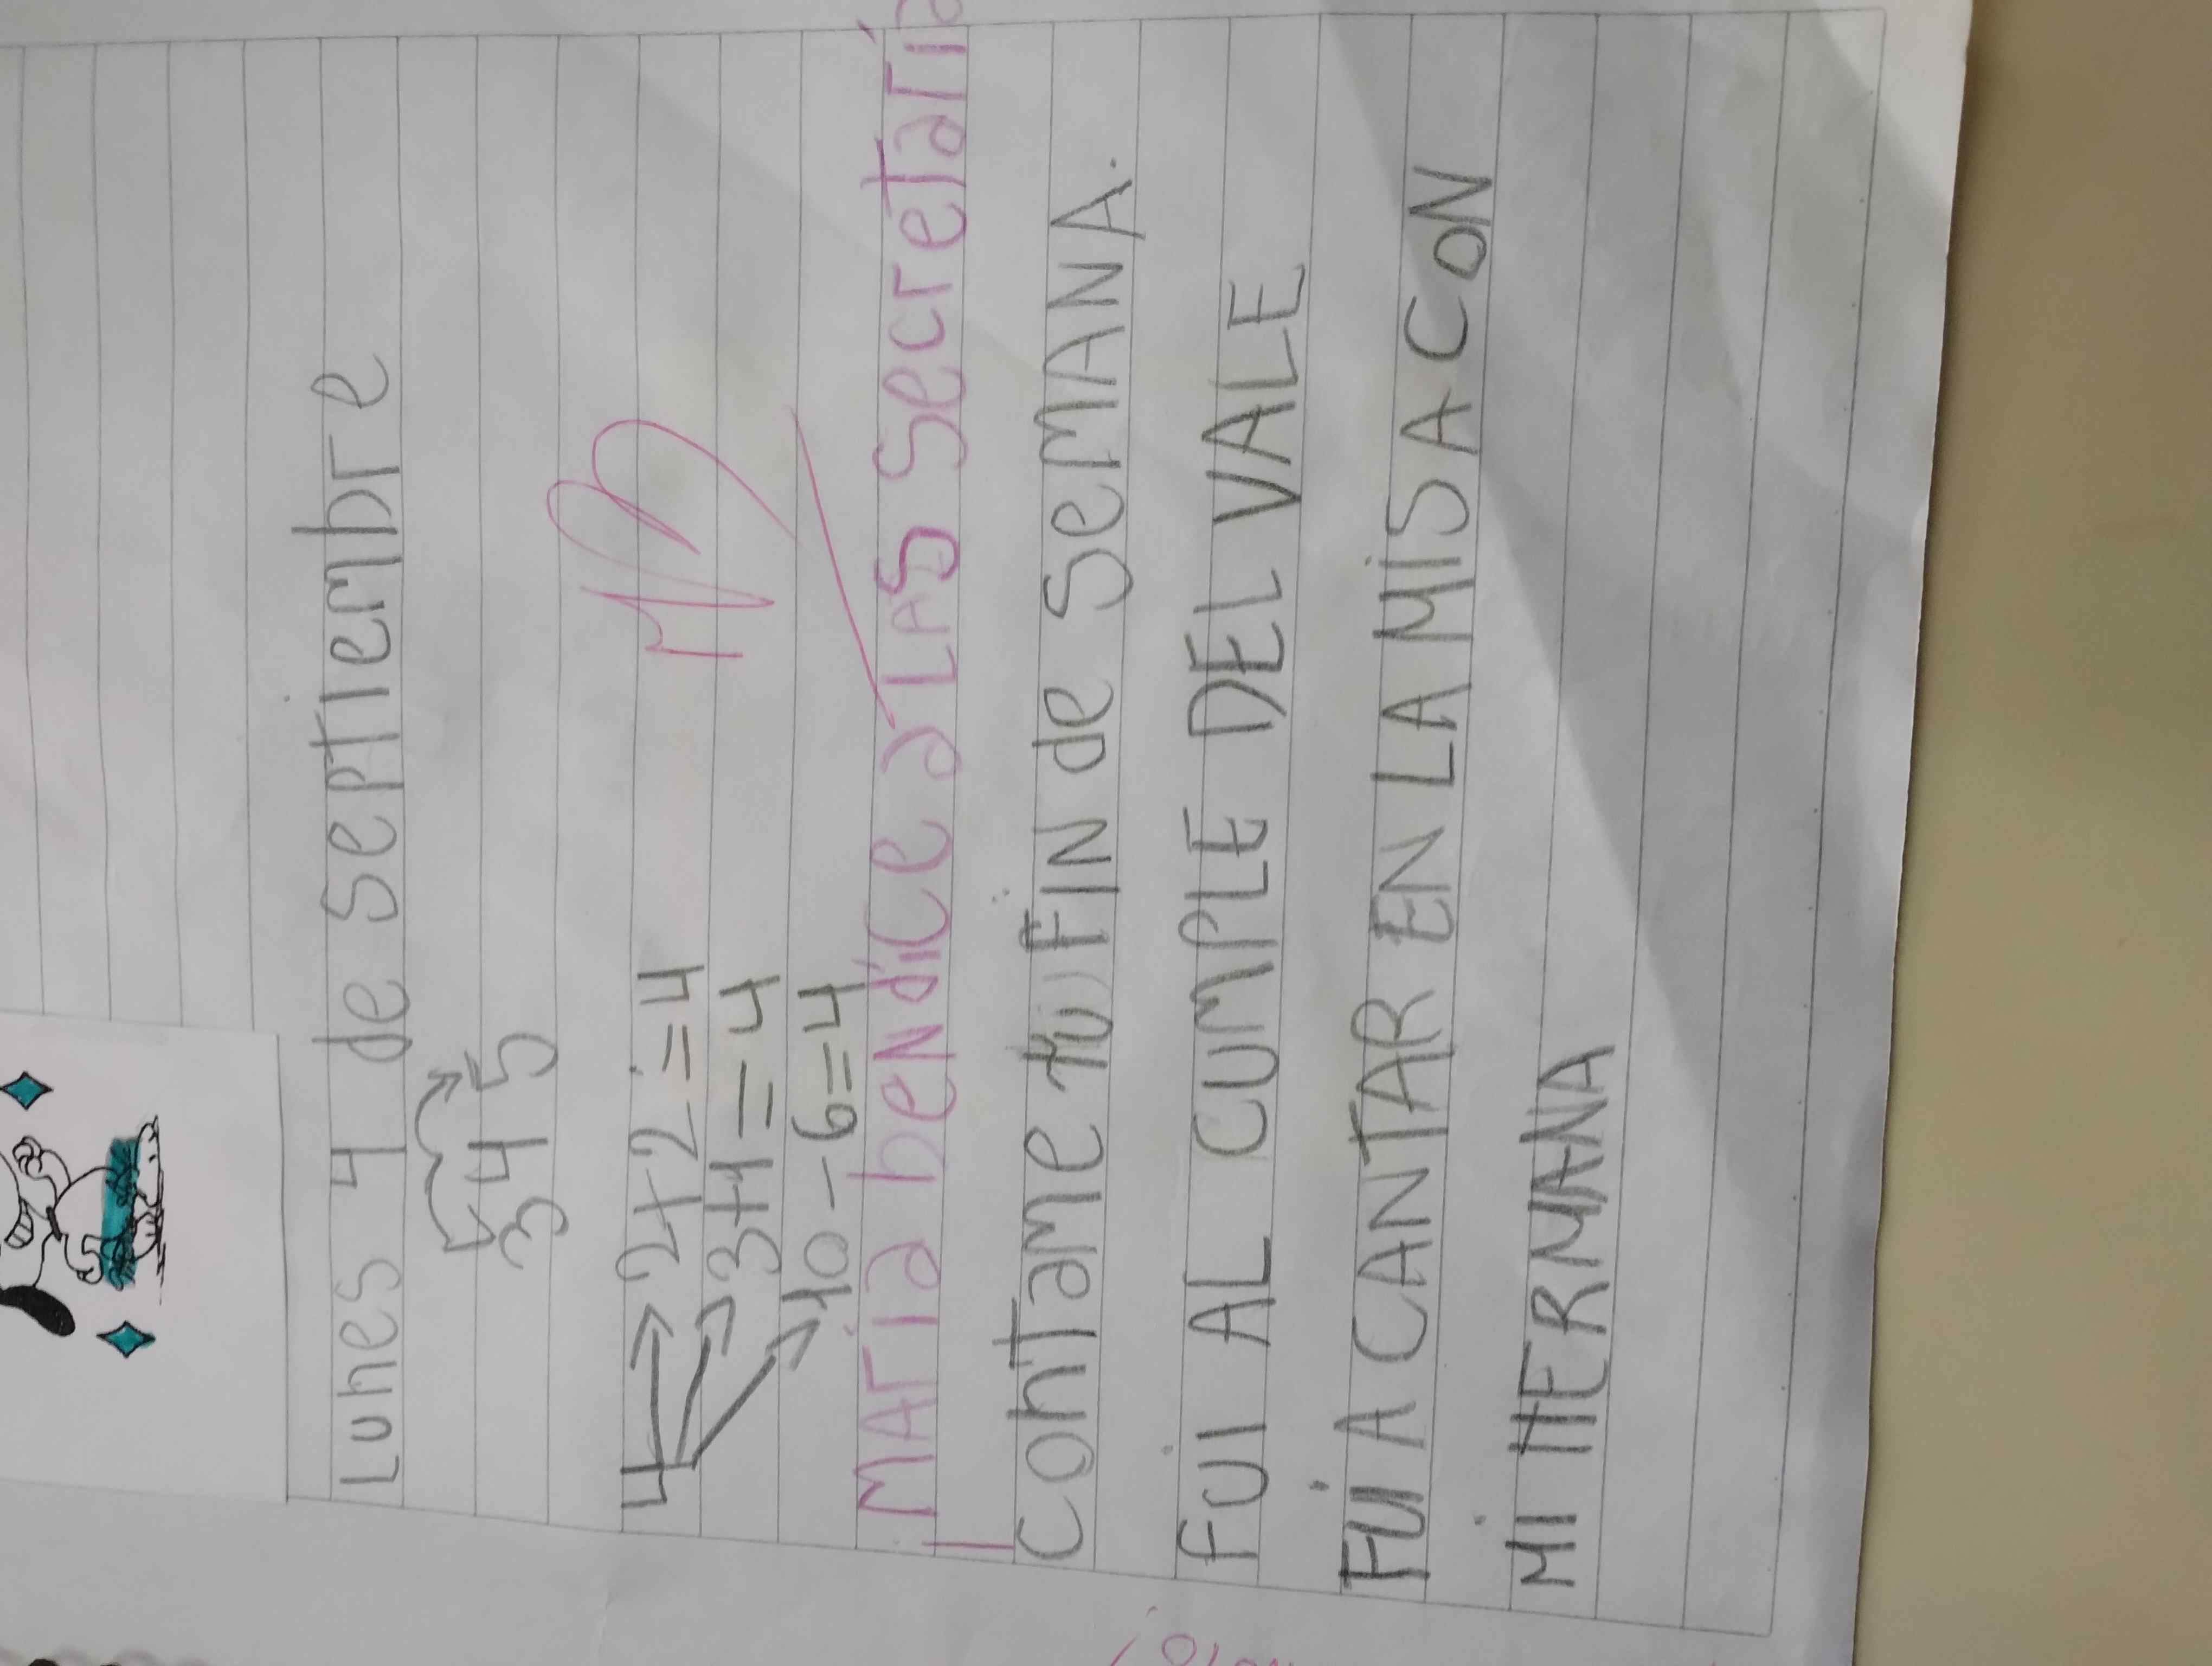 Lunes 4 de Septiembre
3 4 5
4 → 2+2=4
→ 3+1=4
→ 10-6=4
MB
¡MAría beNdice a LAS Secretaría
Contame tu FIN de SeMANA.
FUi AL CUMPLE DEL VALE
FUi A CANTAR EN LA MiSA CON
Mi HERMANA